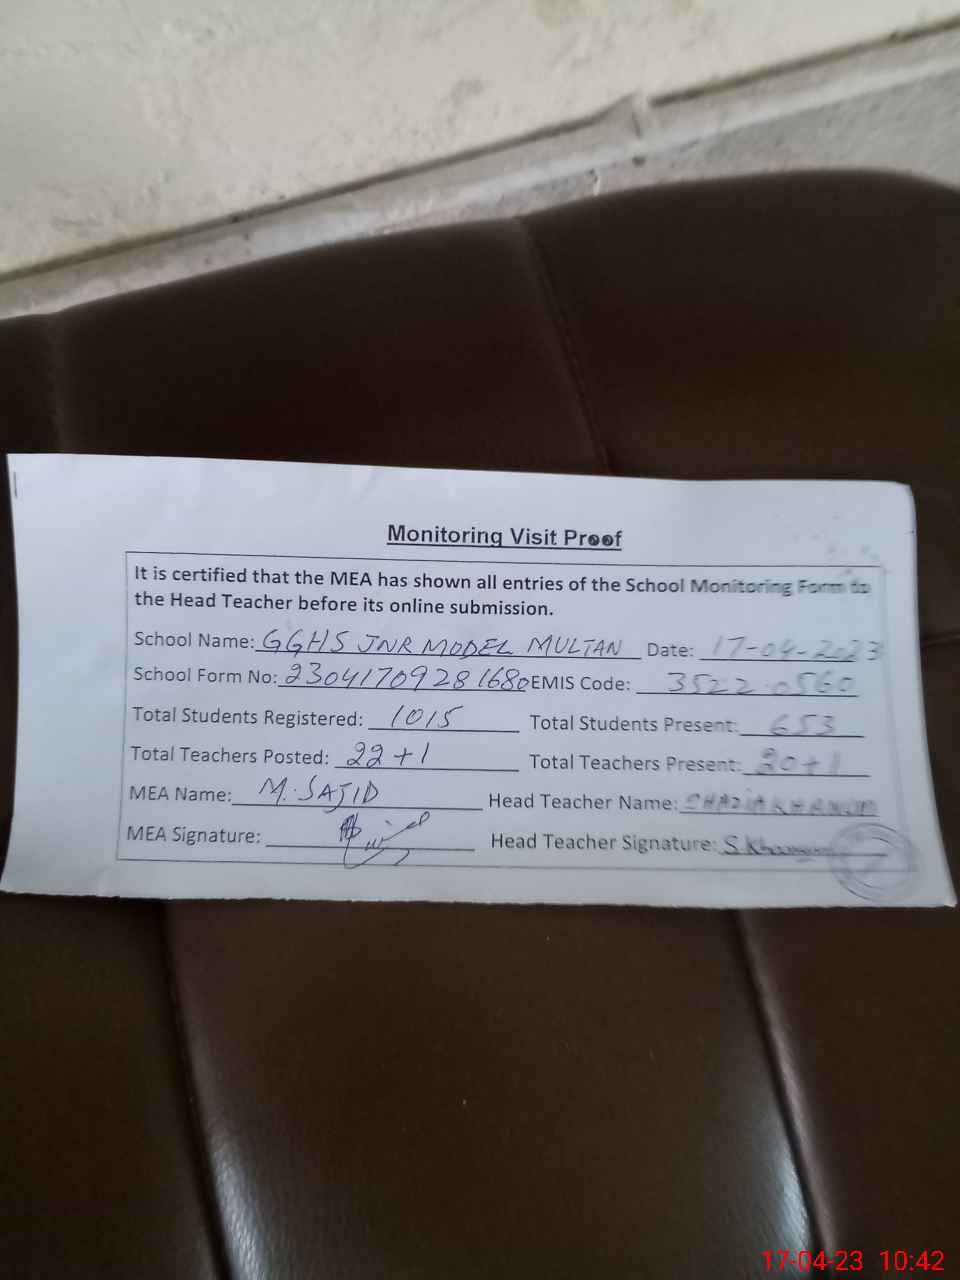 Monitoring Visit Proof
It is certified that the MEA has shown all entries of the School Monitoring Form to
the Head Teacher before its online submission.
School Name: GGHS JNR MODEL MULTAN Date: 17-04-2023
School Form No: 230417092811680 EMIS Code: 35220560
Total Students Registered: 1015 Total Students Present: 653
Total Teachers Posted: 22+1 Total Teachers Present: 20+1
MEA Name: M. SAJID Head Teacher Name: SHAZIA KHANUM
MEA Signature: Head Teacher Signature: S. Khanum
17-04-23 10:42